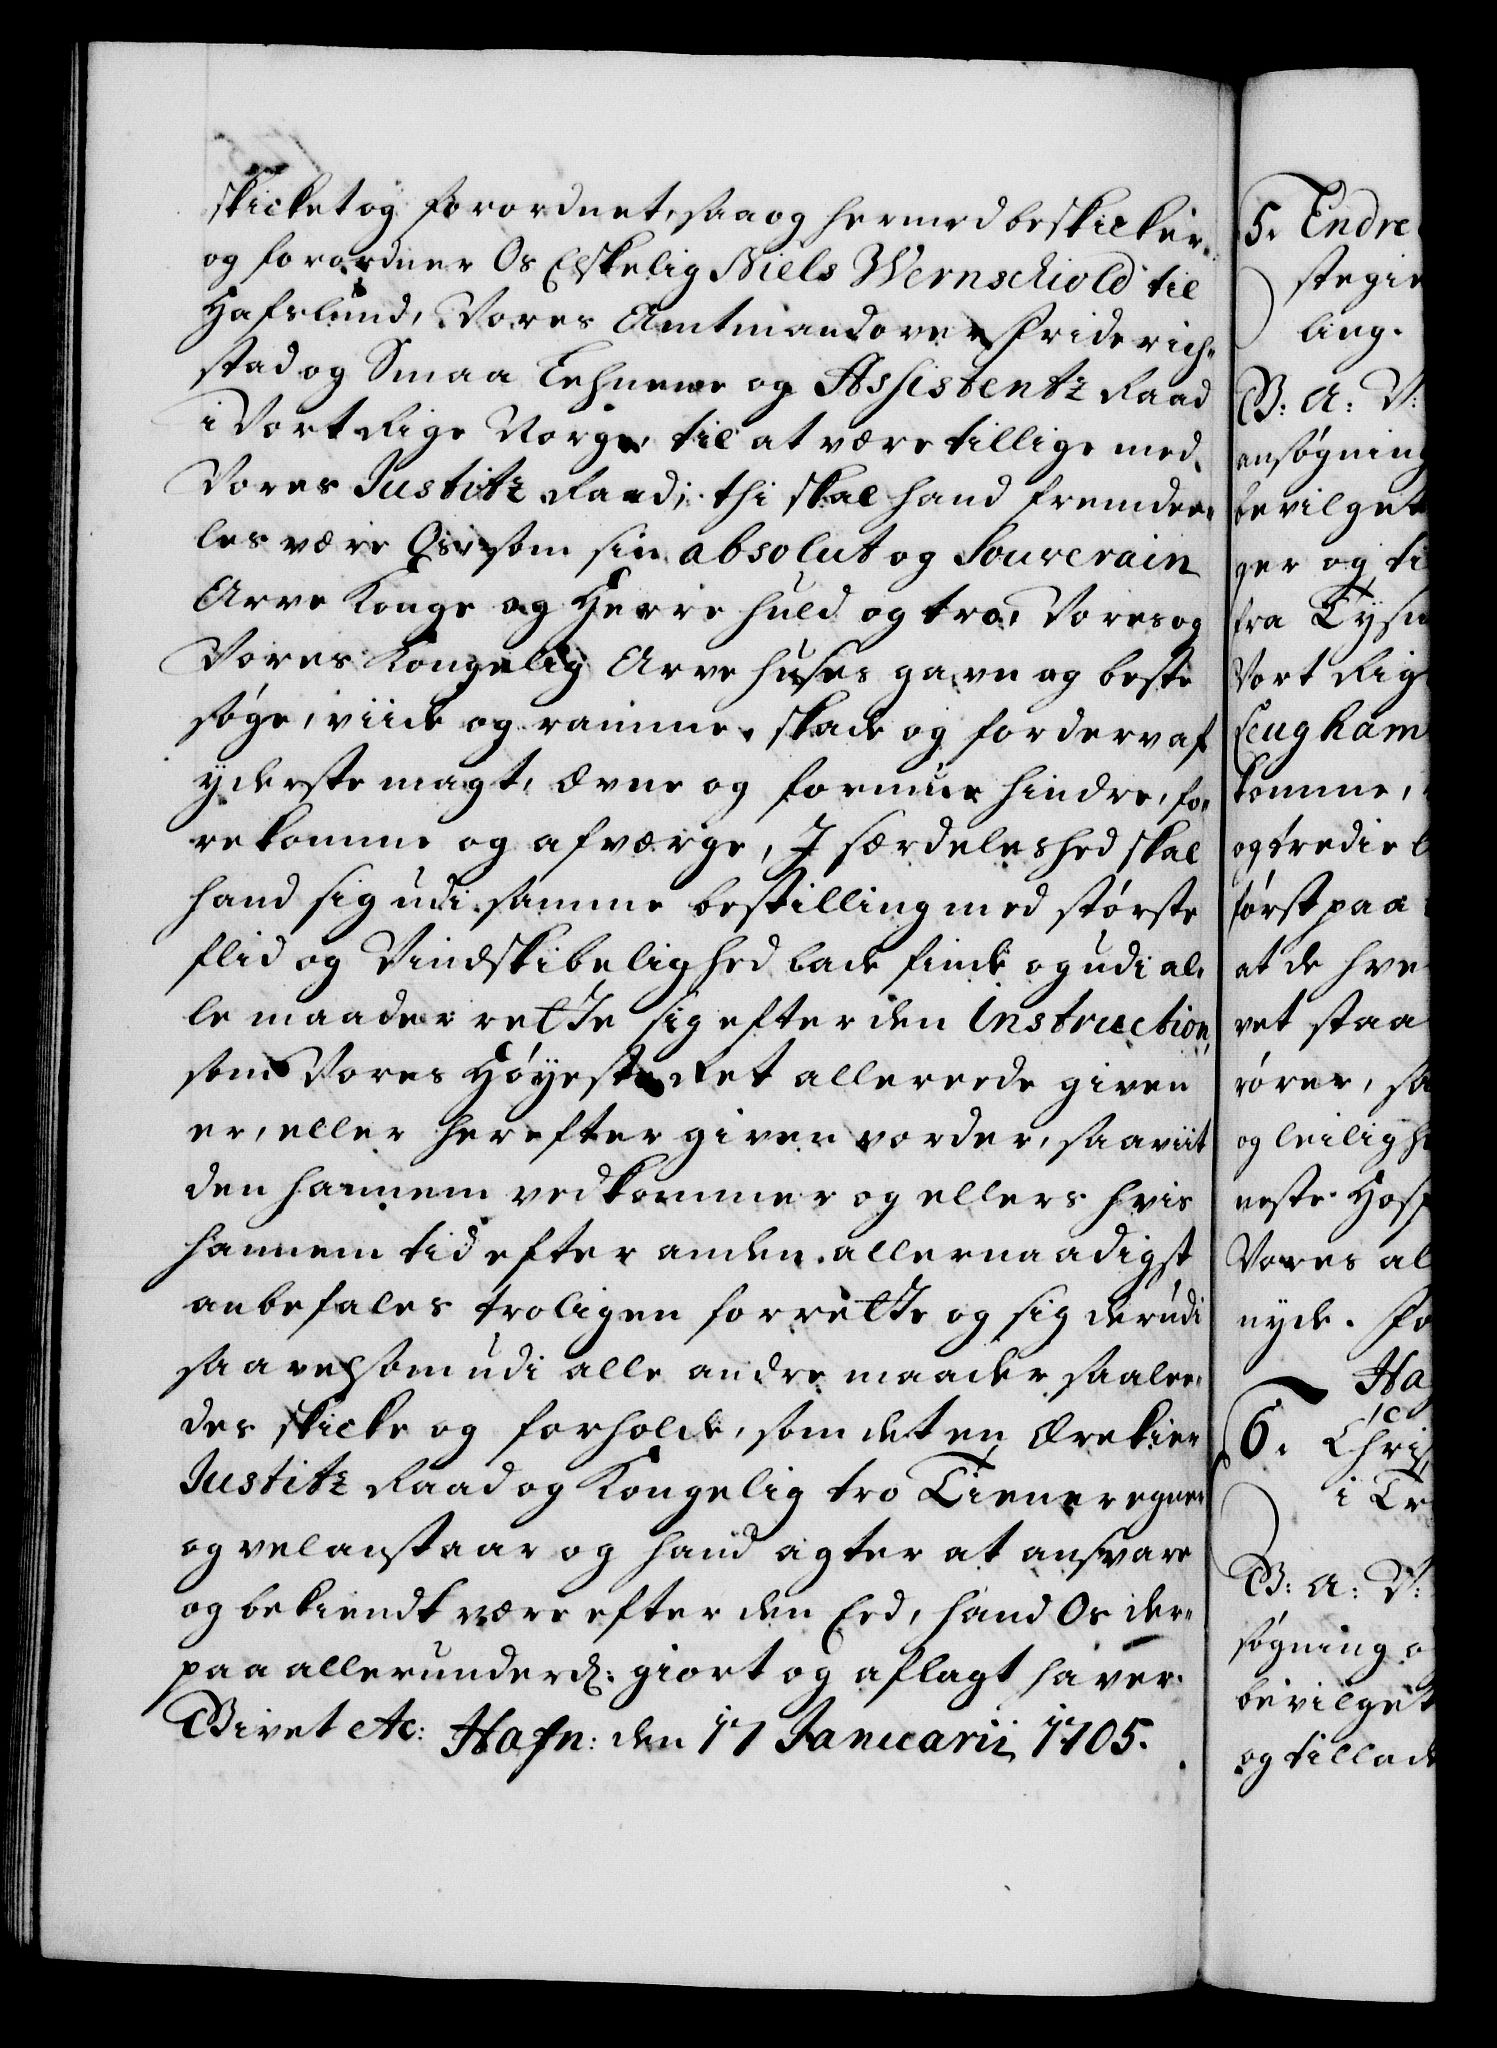 skicket og forordnet, saa og hermed beskicker
og forordner Os Elskelig Niels Wernschiold til
Hafslund, Vores Amtmand over Friderich-
stad og Smaa Lehnene og Assistentz Raad
i Vort Rige Norge, til at være tillige med
Vores Justitz Raad; thi skal hand fremdee-
les være Os som sin absolut og Souverain
Arve Konge og Herre huld og tro, Vores og
Vores Kongelig Arve Huses gavn og beste
søge, viide og ramme, skade og forderv af
yderste magt, ævne og formue hindre, fo-
rekomme og afværge, I særdeleshed skal
hand sig udi samme bestilling med største
flid og Vindskibelighed lade finde og udi al-
le maader rette sig efter den Instruction,
som Vores Høyeste Ret allereede given
er, eller herefter given vorder, saaviit
den hannem vedkommer og ellers hvis
hannem tid efter anden allernaadigst
anbefales troligen forrette og sig derudi
saavelsom udi alle andre maader saalee-
des skicke og forholde, som det en ærekier
Justitz Raad og Kongelig tro Tiener egner
og vel anstaar og hand agter at ansvare
og bekiendt være efter den Eed, hand Os der-
paa allerunderd: giort og aflagt haver.
Givet etc: Hafn: den 17 Januarii 1705.
5. Endre
stegie
ling.
G: A: V:
ansøgning
bevilget
ger og ti
fra Tysn
Vort Rig
Leugkam
komme,
og tredie
først paa
at de hve
vet staa
rører, sa
og leiligh
neste Hos
Vores al
nyde. Fo
Ha
6. Chris
i Tr
G: A: V:
søgning o
bevilget
og tillad